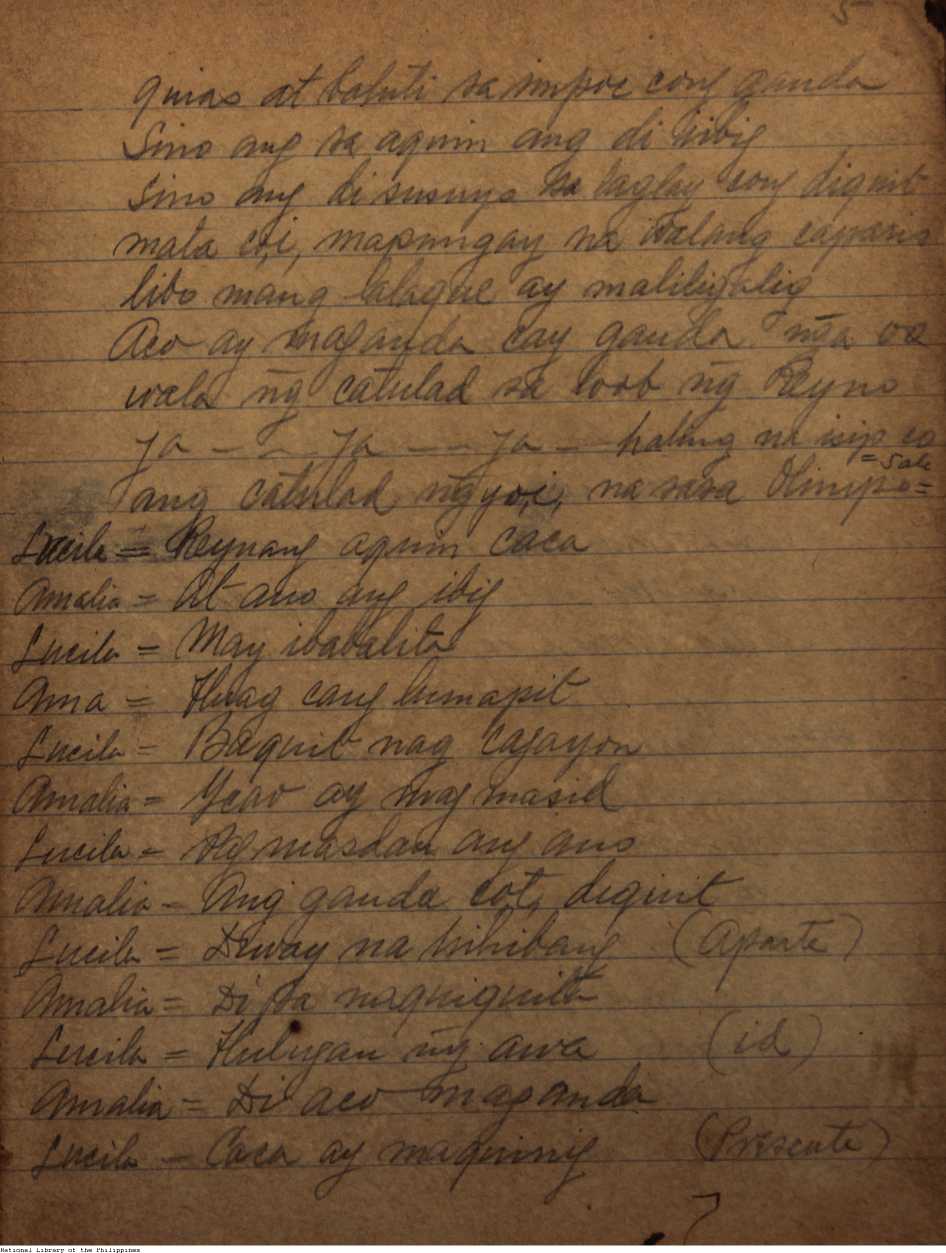 5
quias at baluti sa impoc cong ganda
Sino ang sa aquin ang di iibig
Sino ang di susuyo sa taglay cong diquit
mata co,i, mapungay na walang caparis
libo mang lalaque ay maliligalig
Aco ay maganda cay ganda nga co
wala ng catulad sa loob ng Reyno
ja - - - ja - - - ja - haling na isip co
ang catulad ngyo,i, na sasa Olimpo=
=Sale
Lucila = Reynang aquin caca
Amalia = At ano ang ibig
Lucila = May ibabalita
Ama = Huag cang lumapit
Lucila = Baquit nag cagayon
Amalia = Ycao ay mag masid
Lucila = Ag masdan ang ano
Amalia = Ang ganda co,t, diquit
Lucila = Diway na hihibang (Aparte)
Amalia = Di pa naquiquita
Lucila = Hulugan ng awa (id)
Amalia = Di aco maganda
Lucila = Caca ay maquinig (Presente)
National Library of the Philippines